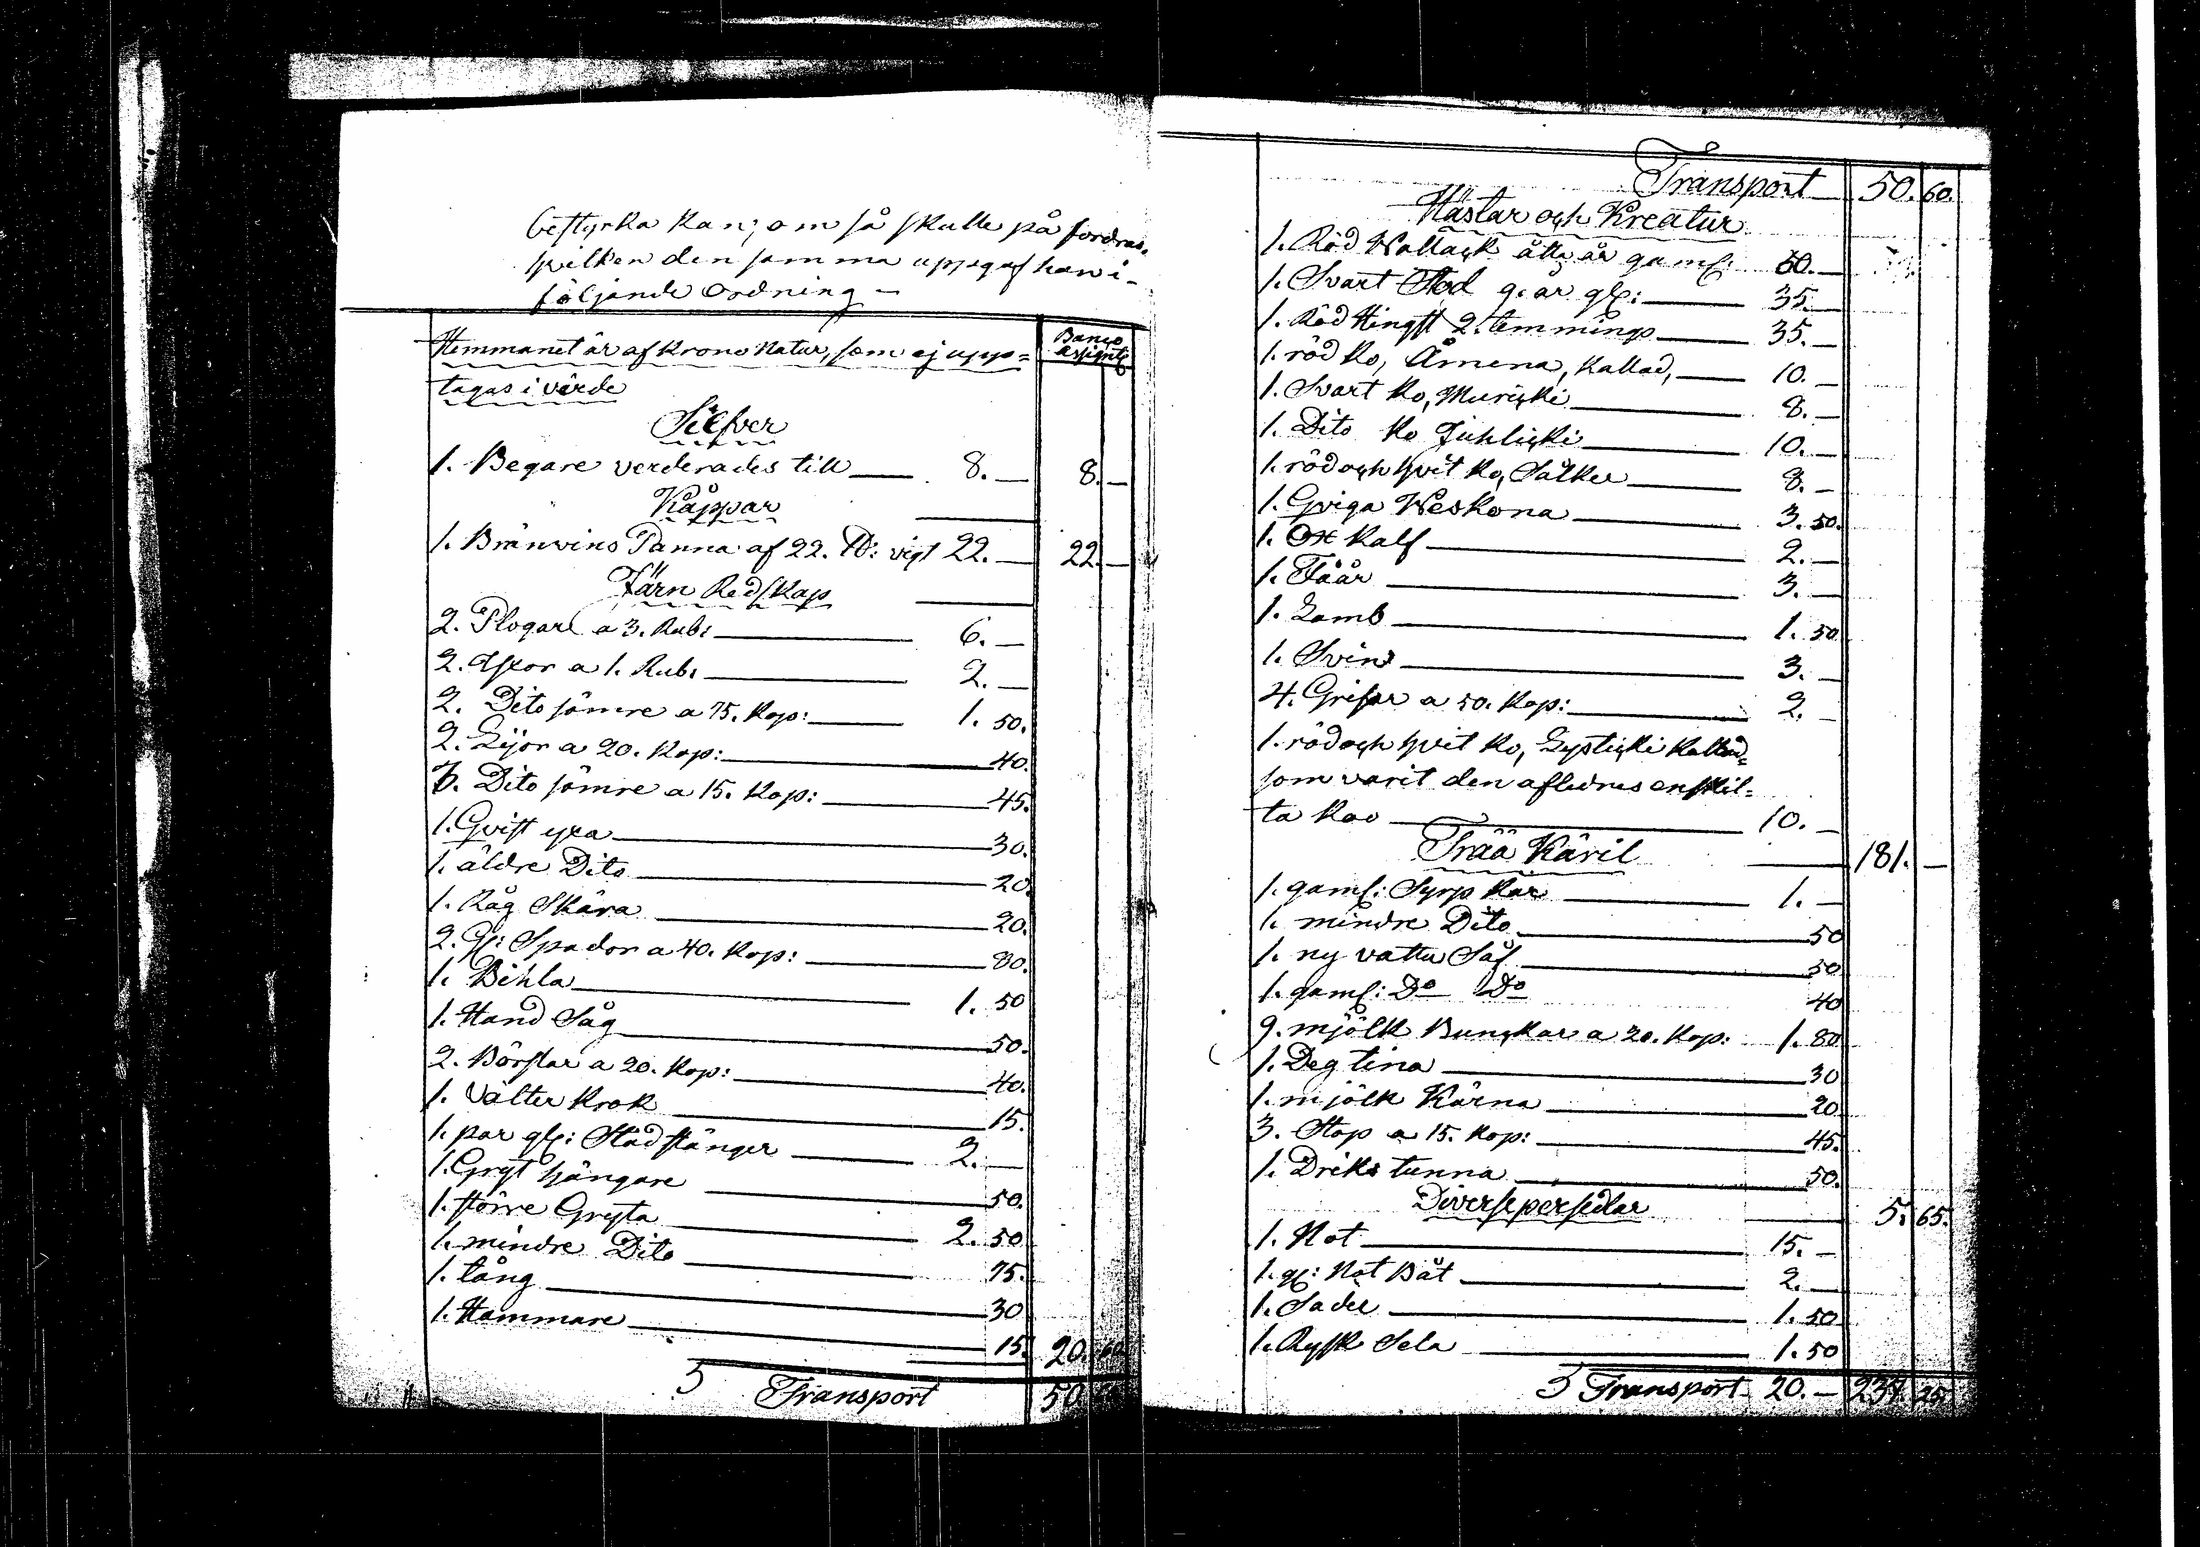 bestyrka kan; om så skulle på fordras,
hvilken den samma uppgaf han i
följande Ordning —
Hemmanet är af Krono Natur, som ej upp=
tagas i värde
Banco
Assignt:
Silfver
1. Begare verderades till 8. — 8. —
Kåppar
1. Bränvins Panna af 22. ℔: vigt 22. — 22. —
Järn Redskap
2. Plogar a 3. Rub: 6. —
2. Yxor a 1. Rub: 2. —
2. Dito sämre a 75. Kop: 1. 50.
2. Lijor a 20. Kop: 40.
3. Dito sämre a 15. Kop: 45.
1. Qvist yxa 30.
1. äldre Dito 20.
1. Råg Skära 20.
2. Gl: Spador a 40. Kop: 80.
1. Bihla 1. 50
1. Hand Såg 50.
2. Börstar a 20. Kop: 40.
1. Välter Krok 15.
1. par gl: Städ stänger 2. —
1. Gryt hängare 50.
1. större Gryta 2. 50
1. mindre Dito 75.
1. tång 30
1. Hammare 15. 20. 60
Transport 50. 60
Transport 50. 60.
Hästar och Kreatur
1. Röd Wallack åtta år gaml: 50. —
1. Svart Stod 9. år gl: 35. —
1. Röd Hingst 2. temmings 35. —
1. röd ko, Åmena, kallad, 10. —
1. Svart ko, Muricki 8. —
1. Dito ko Juhlicki 10. —
1. röd och hvit ko, Sälker 8. —
1. Qviga Weskona 3. 50.
1. Ox Kalf 2. —
1. Fåår 3. —
1. Lamb 1. 50
1. Svin 3. —
4. Grisar a 50. Kop: 2. —
1. röd och hvit ko, Lysticki kallad
som varit den aflednes enskil=
ta Koo 10. —
Trää Käril 181. —
1. gaml: Syrp Kar 1. —
1. mindre Dito 50
1. ny vattu Så 50
1. gaml: Do Do 40
9. mjölk Bunckar a 20. Kop: 1. 80
1. Deg tina 30
1. mjölk Kärna 20
3. Stop a 15. Kop: 45.
1. Dricks tunna 50.
Diverse persedlar 5. 65.
1. Not 15. —
1. gl: Not Båt 2. —
1. Sadel 1. 50
1. Rysk Sela 1. 50
Transport 20. — 237. 25.